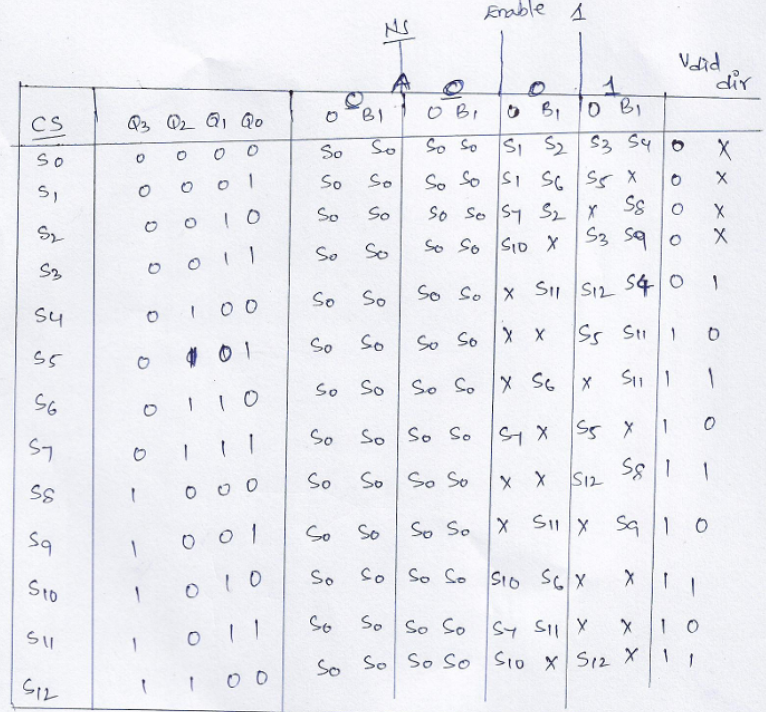 Enable 1
NS
Valid
dir
0 A 0 0 1
CS Q3 Q2 Q1 Q0 0 B1 0 B1 0 B1 0 B1
S0 0 0 0 0 S0 S0 S0 S0 S1 S2 S3 S4 0 X
S1 0 0 0 1 S0 S0 S0 S0 S1 S6 S5 X 0 X
S2 0 0 1 0 S0 S0 S0 S0 S7 S2 X S8 0 X
S3 0 0 1 1 S0 S0 S0 S0 S10 X S3 S9 0 X
S4 0 1 0 0 S0 S0 S0 S0 X S11 S12 S4 0 1
S5 0 1 0 1 S0 S0 S0 S0 X X S5 S11 1 0
S6 0 1 1 0 S0 S0 S0 S0 X S6 X S11 1 1
S7 0 1 1 1 S0 S0 S0 S0 S7 X S5 X 1 0
S8 1 0 0 0 S0 S0 S0 S0 X X S12 S8 1 1
S9 1 0 0 1 S0 S0 S0 S0 X S11 X S9 1 0
S10 1 0 1 0 S0 S0 S0 S0 S10 S6 X X 1 1
S11 1 0 1 1 S0 S0 S0 S0 S7 S11 X X 1 0
S12 1 1 0 0 S0 S0 S0 S0 S10 X S12 X 1 1